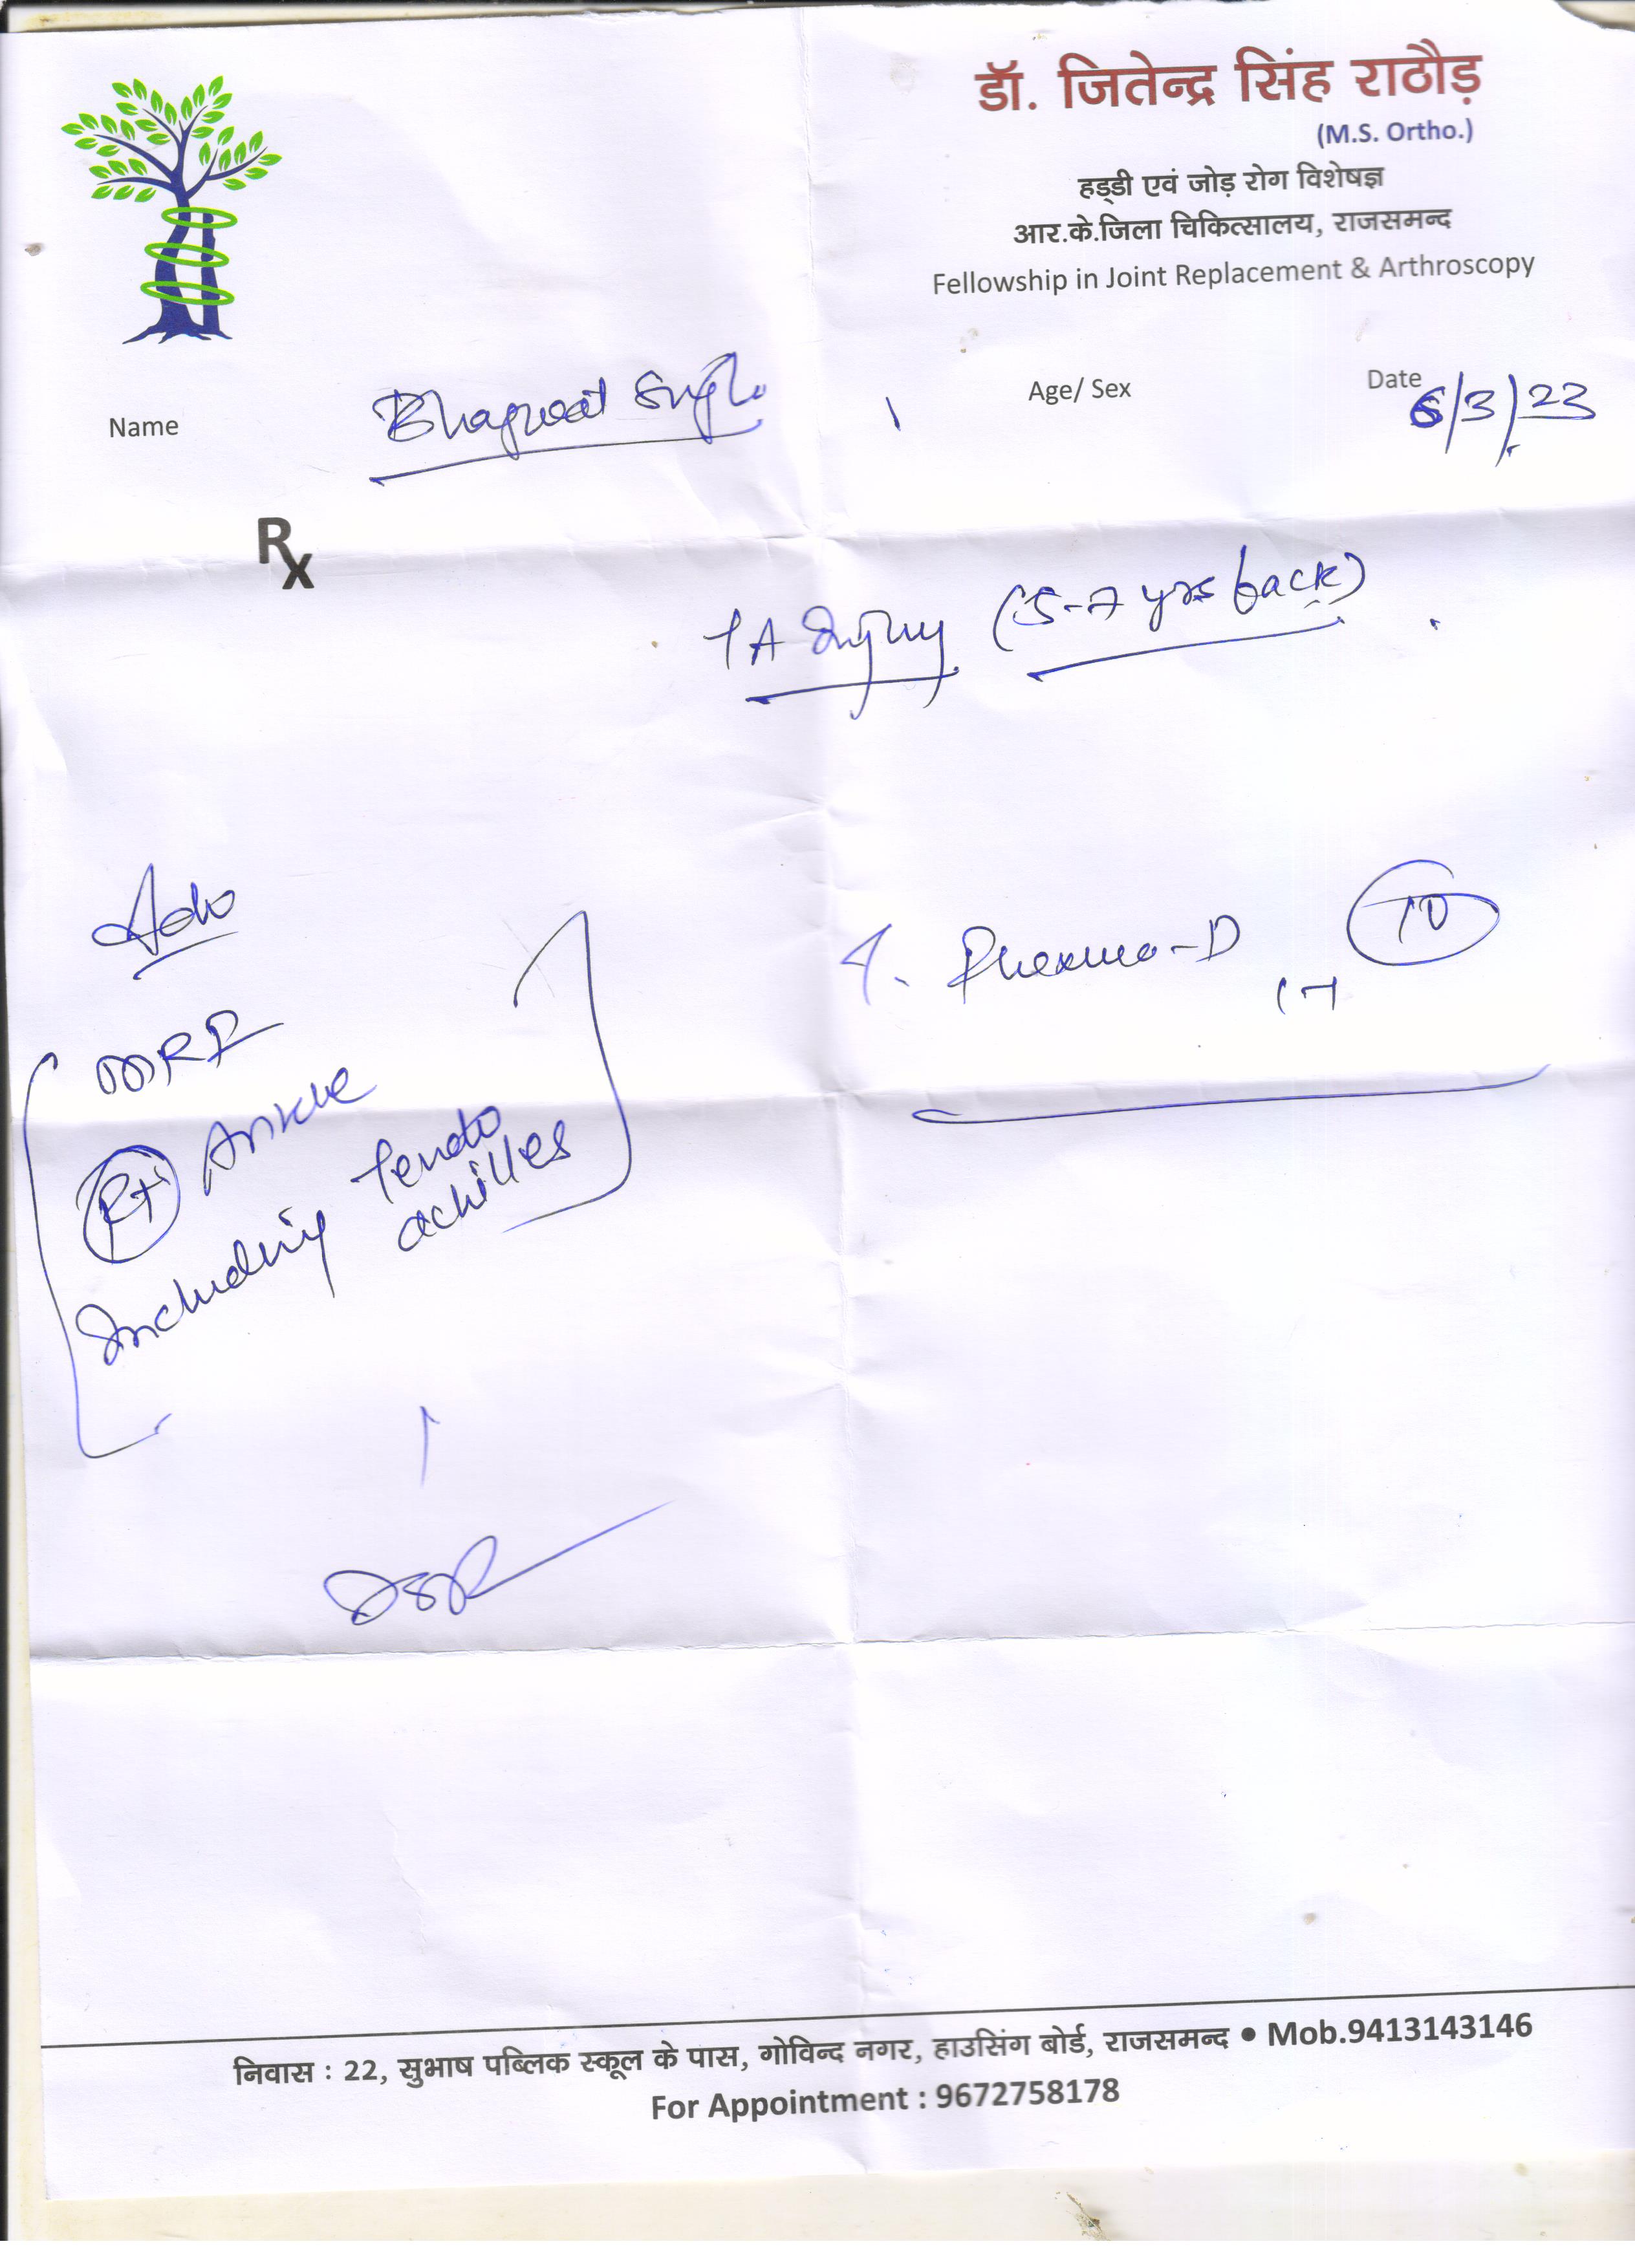 डॉ. जितेन्द्र सिंह राठौड़
(M.S. Ortho.)
हड्डी एवं जोड़ रोग विशेषज्ञ
आर.के.जिला चिकित्सालय, राजसमन्द
Fellowship in Joint Replacement & Arthroscopy
Name Bhagwat Singh Age/ Sex Date 6/3/23
Rx
TA Injury (5-7 yrs back)
Adv
MRI
Rt Ankle
Including Tendo
achilles
T. -D 10
निवास : 22, सुभाष पब्लिक स्कूल के पास, गोविन्द नगर, हाउसिंग बोर्ड, राजसमन्द • Mob.9413143146
For Appointment : 9672758178